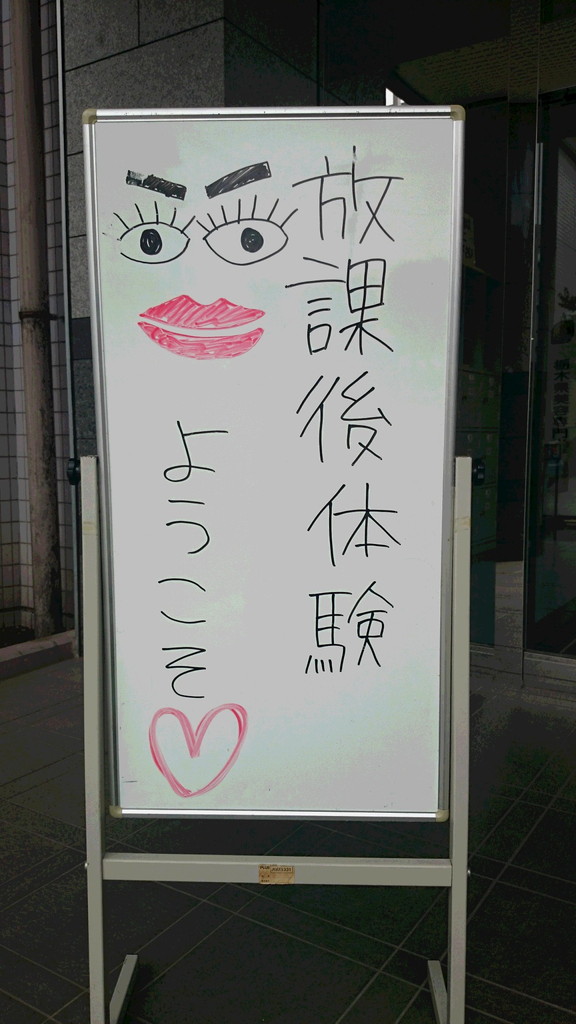 放課後体験
ようこそ